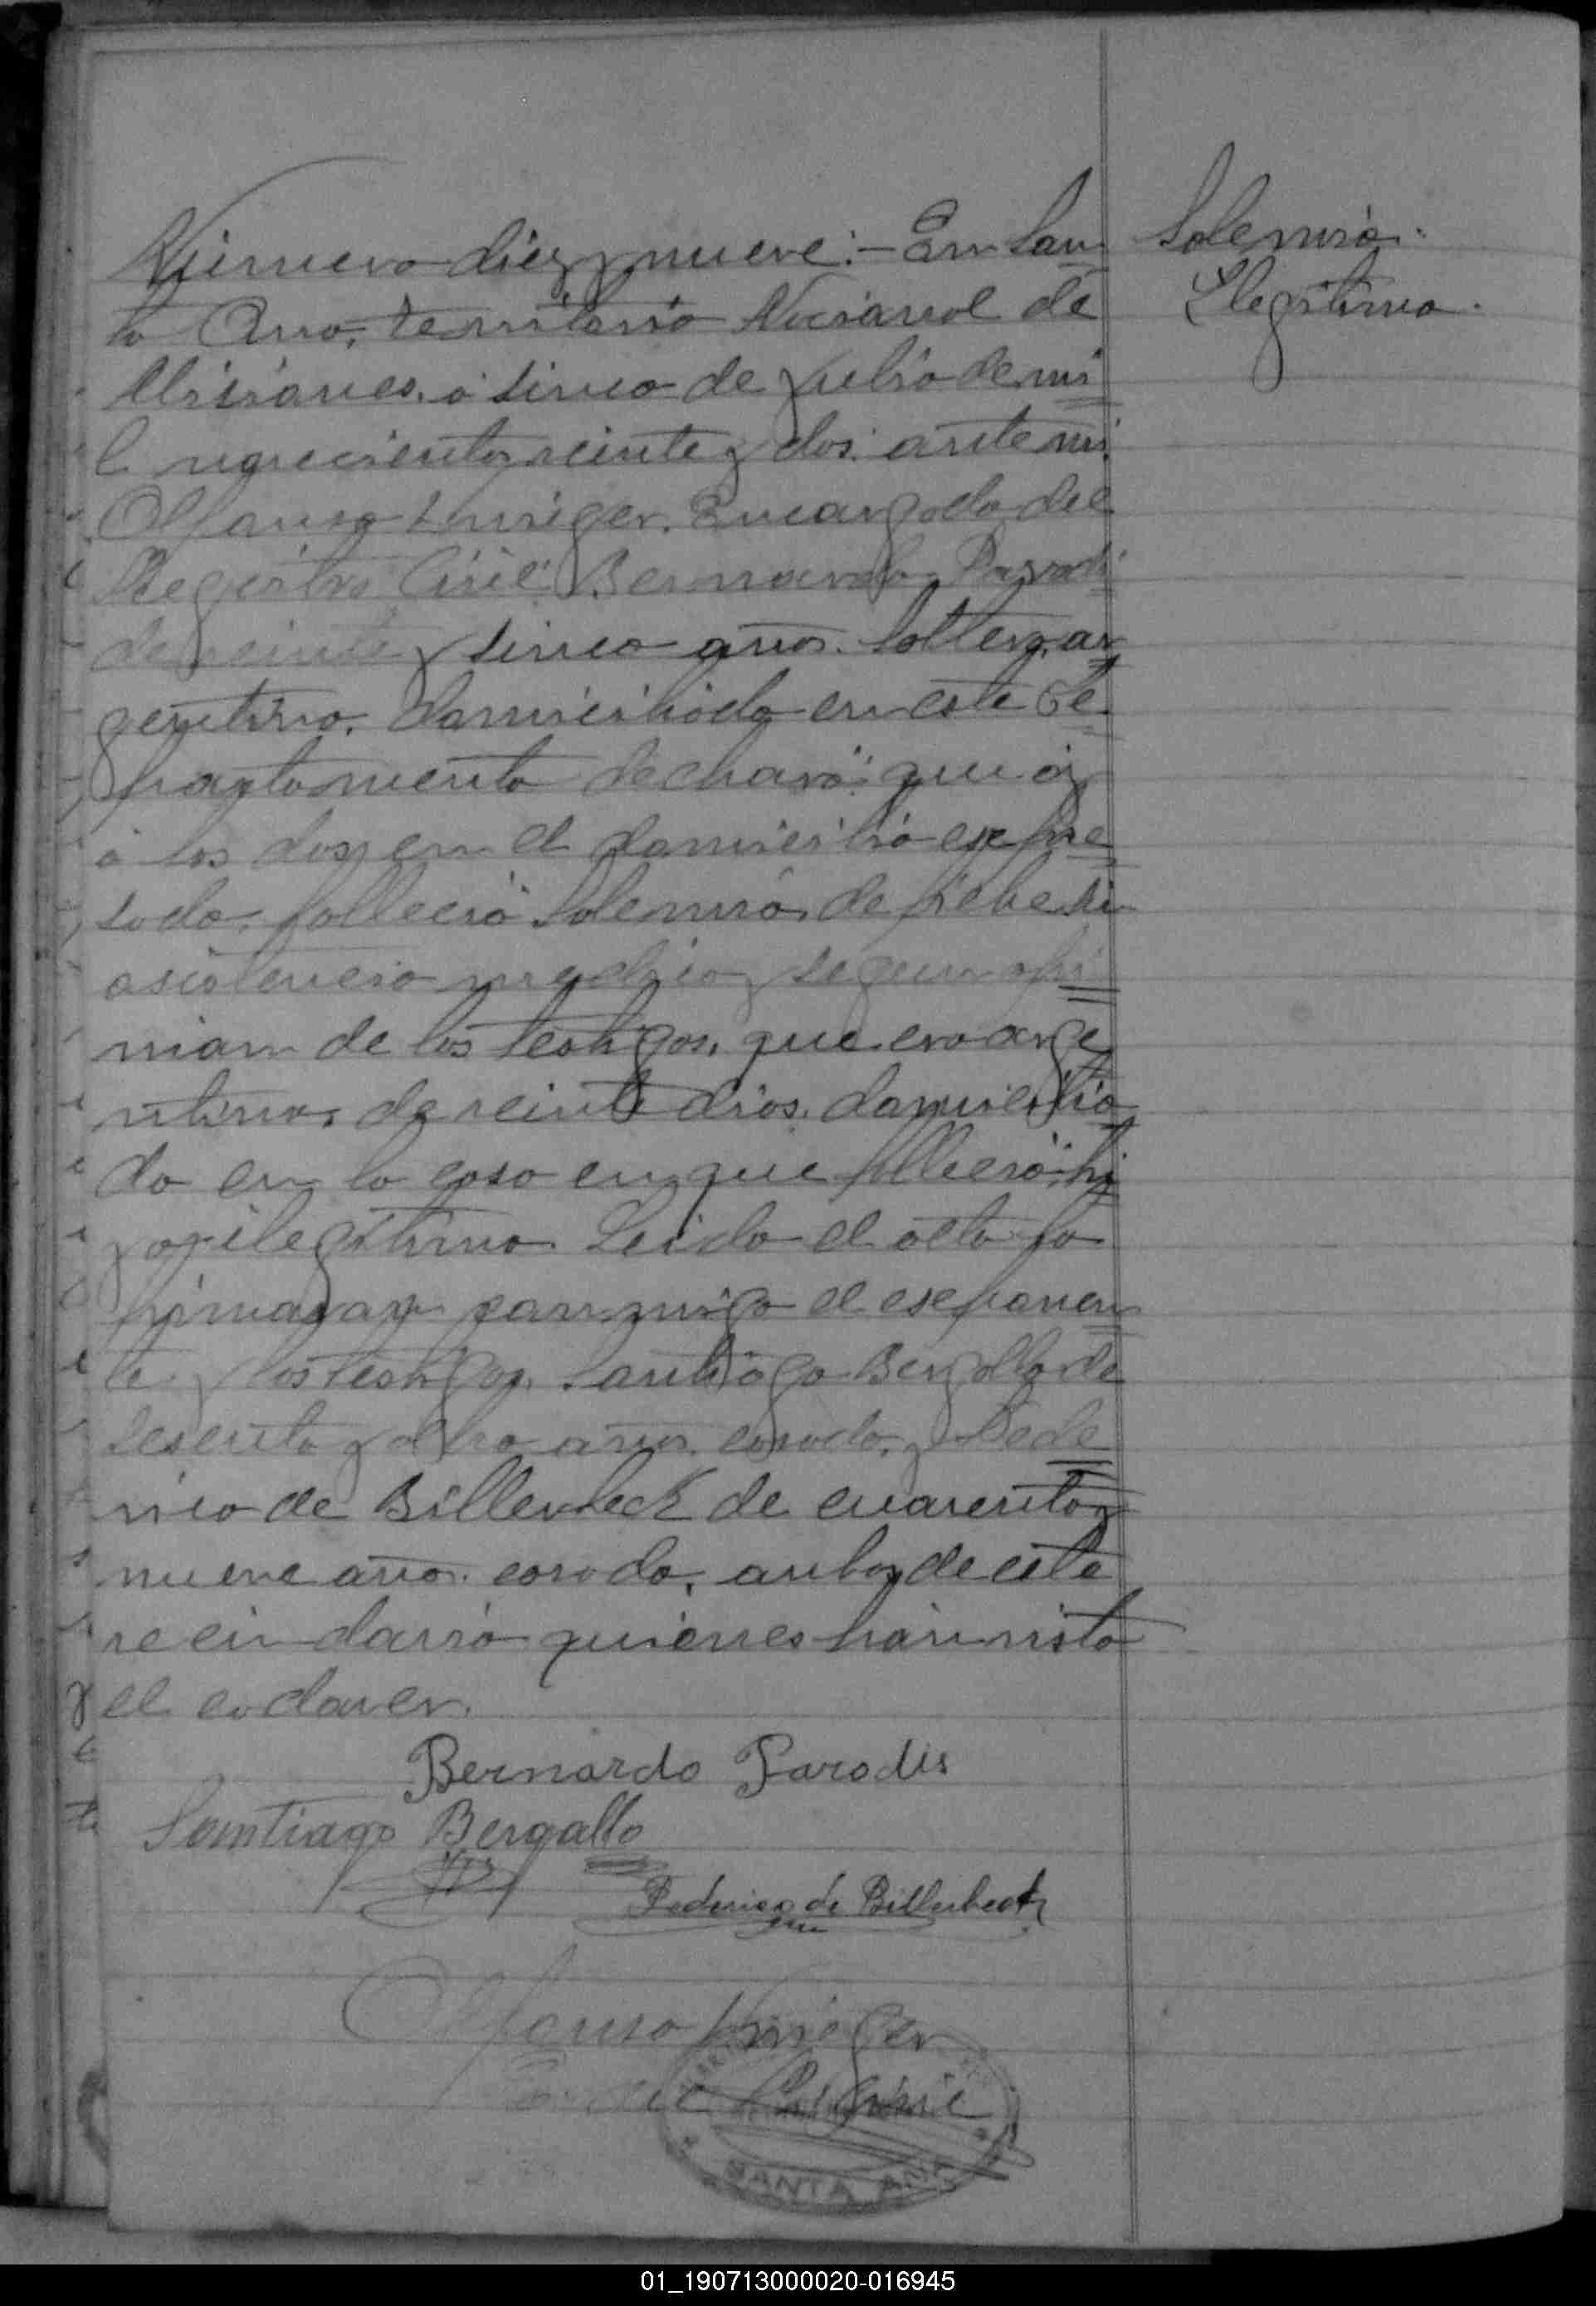 Numero diez y nueve:- En San
ta Ana, territorio Nacional de
Misiones, a sinco de Julio de mi
l novecientos veinte y dos, ante mi
Alfonso Kruger, Encargado del
Registro Civil Bernardo Parodi
de veinte y sinco anos, soltero, ar
gentino, domiciliado en este De
partamento declaró: que oy
a las dos en el domicilio expre
sado, fallecio Solemio, de fiebe si
asistencia medica, segun opi
nion de los testigos, que era arge
ntino, de veinte dias, domicilia
do en la casa en que fallecio, hi
jo ilegitimo Leida el acta, la
firmaran conmigo el exponen
te y los testigos, Santiago Bergallo de
sesenta y ocho anos, casado, y Fede
rico de Billerbeck de cuarenta y
nueve anos, casado, anbos de este
vecindario quienes han visto
el cadaver.
Bernardo Parodis
Santiago Bergallo
Federico de Billerbeck
Alfonso Kruger
E. del R. Civil
SANTA ANA
Solemio.
Ilegitimo.
01_190713000020-016945